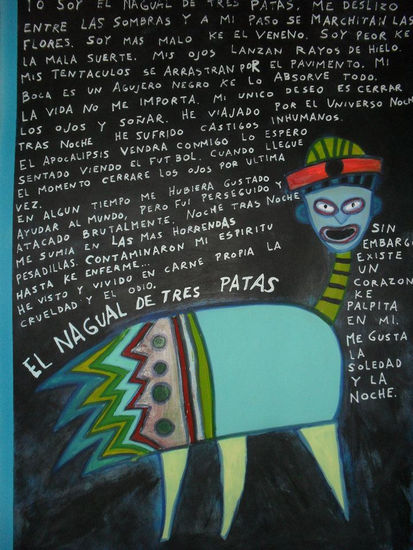 YO SOY EL NAGUAL DE TRES PATAS. ME DESLIZO
ENTRE LAS SOMBRAS Y A MI PASO SE MARCHITAN LAS
FLORES. SOY MAS MALO KE EL VENENO. SOY PEOR KE
LA MALA SUERTE. MIS OJOS LANZAN RAYOS DE HIELO.
MIS TENTACULOS SE ARRASTRAN POR EL PAVIMENTO. MI
BOCA ES UN AGUJERO NEGRO KE LO ABSORVE TODO.
LA VIDA NO ME IMPORTA. MI UNICO DESEO ES CERRAR
LOS OJOS Y SOÑAR. HE VIAJADO POR EL UNIVERSO NOCHE
TRAS NOCHE HE SUFRIDO CASTIGOS INHUMANOS.
EL APOCALIPSIS VENDRA CONMIGO LO ESPERO
SENTADO VIENDO EL FUTBOL. CUANDO LLEGUE
EL MOMENTO CERRARE LOS OJOS POR ULTIMA
VEZ.
EN ALGUN TIEMPO ME HUBIERA GUSTADO
AYUDAR AL MUNDO, PERO FUI PERSEGUIDO Y
ATACADO BRUTALMENTE. NOCHE TRAS NOCHE
ME SUMIA EN LAS MAS HORRENDAS
PESADILLAS. CONTAMINARON MI ESPIRITU
HASTA KE ENFERME...
HE VISTO Y VIVIDO EN CARNE PROPIA LA
CRUELDAD Y EL ODIO.
SIN
EMBARGO
EXISTE
UN
CORAZON
KE
PALPITA
EN MI.
ME GUSTA
LA
SOLEDAD
Y LA
NOCHE.
EL NAGUAL DE TRES PATAS